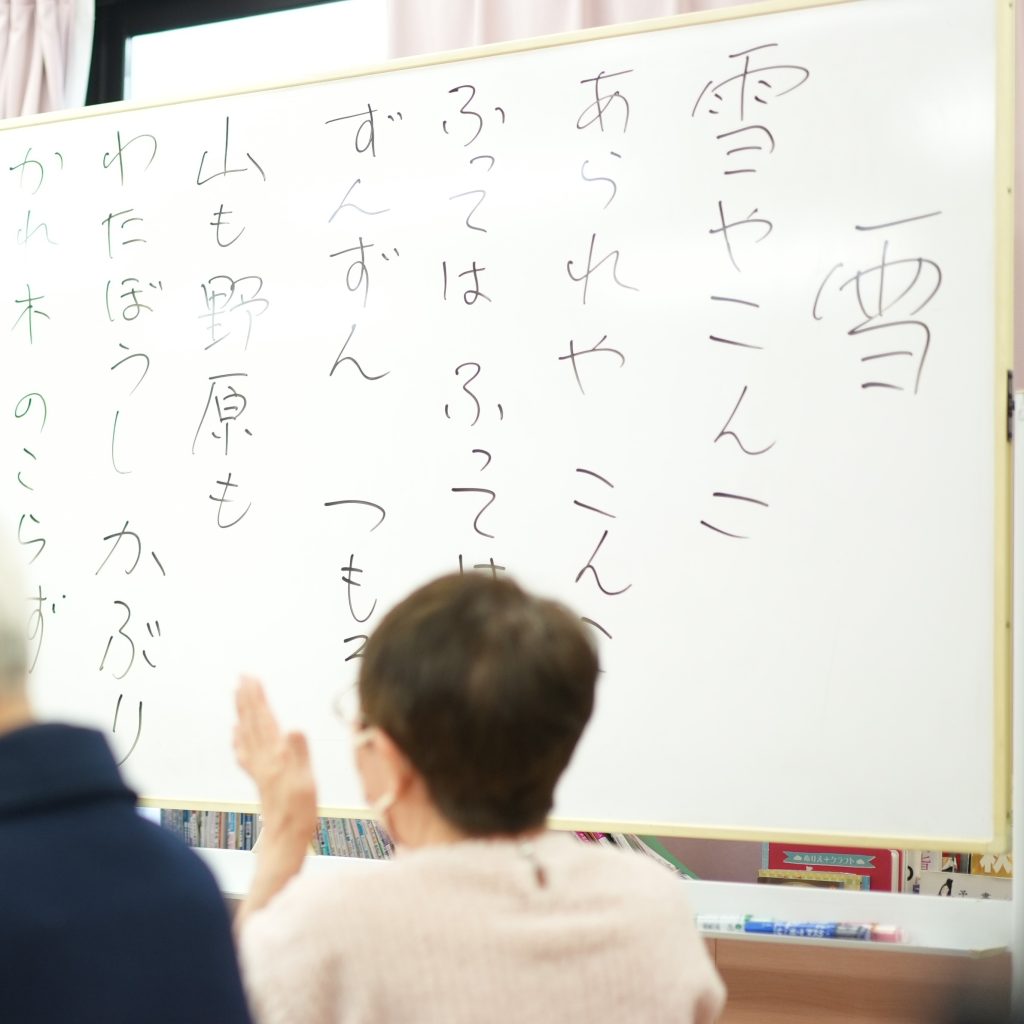 雪
雪やこんこ
あられや こん
ふっては ふっては
ずんずん つもる
山も野原も
わたぼうし かぶり
かれ木 のこらず
ぬりえ+クラフト